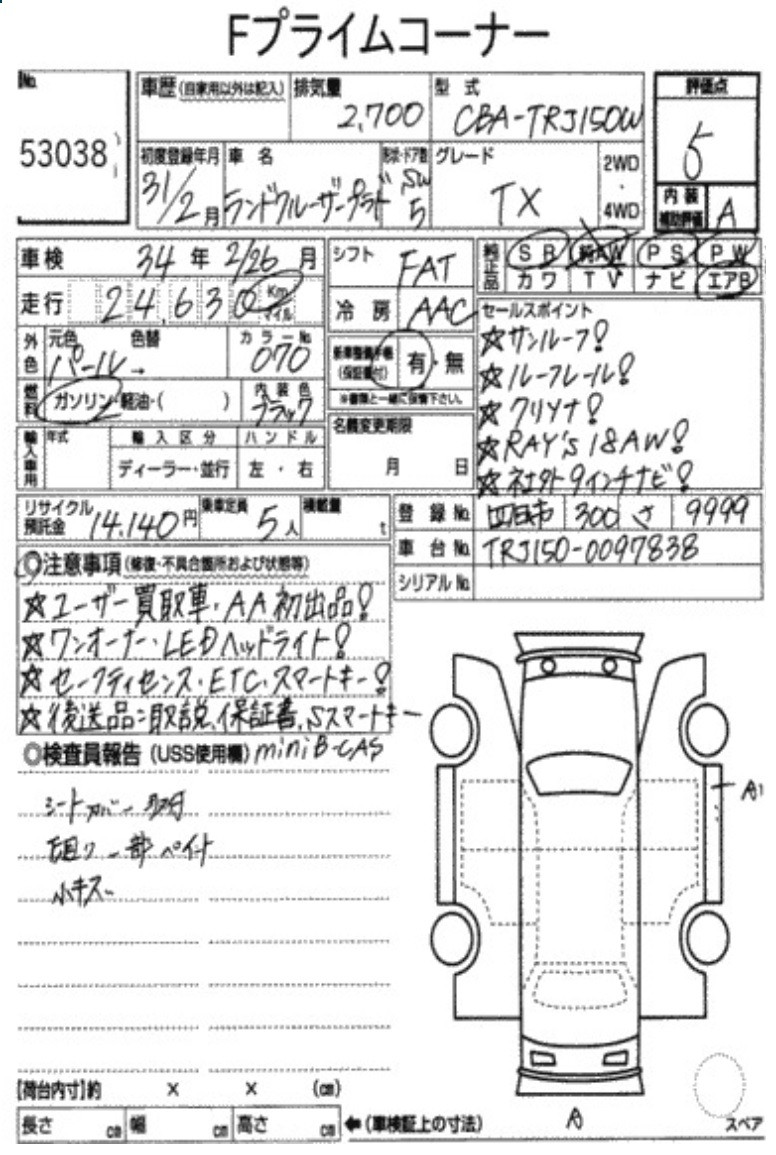 Fプライムコーナー
No.
53038
車歴 (自家用以外は記入)
排気量
2,700
型 式
CBA-TRJ150W
評価点
5
初度登録年月
31/2月
車 名
ランドクルーザープラド
形状・ドア数
SW
5
グレード
TX
2WD
・
4WD
内 装
補助評価
A
車検
34 年 2/26 月
シフト
FAT
純正品
SR 純AW PS PW
カワ TV ナビ エアB
走行
24,630 Km マイル
冷 房
AAC
セールスポイント
☆サンルーフ!
☆ルーフレール!
☆クリソナ!
☆RAY's 18AW!
☆社外9インチナビ!
外色
元色 色替
パール→
カラーNo.
070
新車整備手帳
(保証書付)
有・無
※書類と一緒に保管下さい。
燃料
ガソリン・軽油・( )
内 装 色
ブラック
名義変更期限
月 日
輸入車用
年式
輸 入 区 分
ディーラー・並行
ハ ン ド ル
左 ・ 右
リサイクル
預託金
14,140円
乗車定員
5人
積載量
t
登 録 No.
四日市 300 さ 9999
車 台 No.
TRJ150-0097838
シリアル No.
◎注意事項 (修復・不具合箇所および状態等)
☆ユーザー買取車・AA初出品!
☆ワンオーナー・LEDヘッドライト!
☆セーフティセンス・ETC・スマートキー!
☆後送品:取説、保証書、Sスマートキー
miniB-CAS
◎検査員報告 (USS使用欄)
シートカバー取付
下回り一部ペイント
小キズ
A1
A
スペア
[荷台内寸]約 × × (cm)
長さ cm 幅 cm 高さ cm
←(車検証上の寸法)